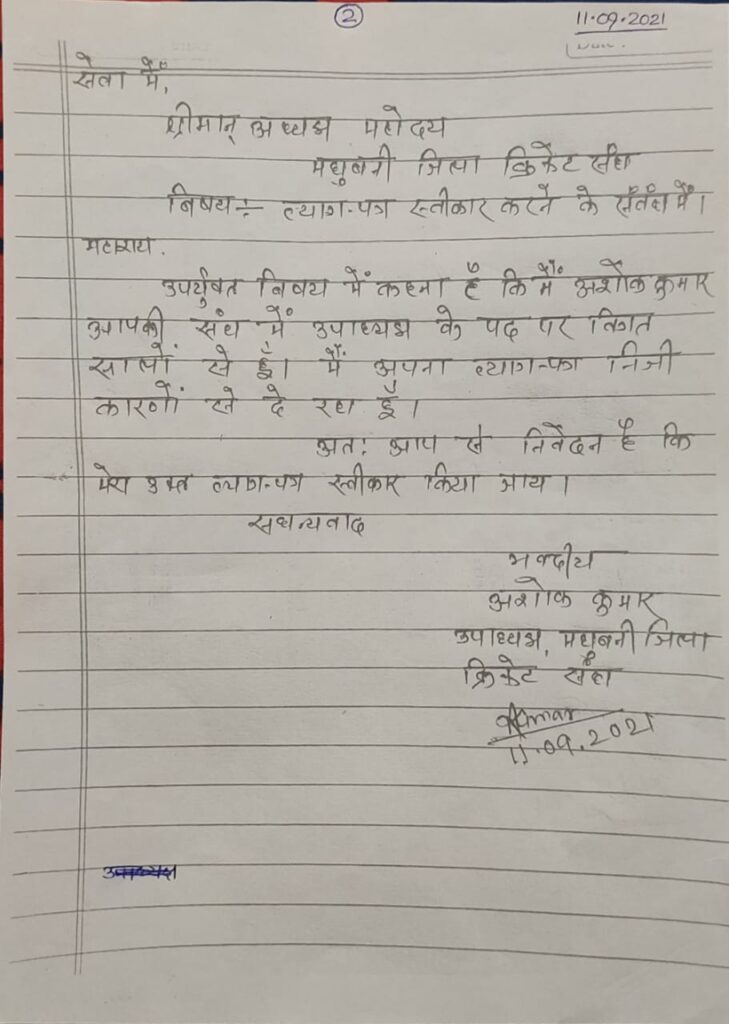 ②
11.09.2021
सेवा में,
श्रीमान् अध्यक्ष महोदय
मधुबनी जिला क्रिकेट संघ
विषय:- त्याग-पत्र स्वीकार करने के संबंध में।
महाशय.
उपर्युक्त विषय में कहना है कि मैं अशोक कुमार
आपकी संघ में उपाध्यक्ष के पद पर विगत
सालों से हूँ। मैं अपना त्याग-पत्र निजी
कारणों से दे रहा हूँ।
अत: आप से निवेदन है कि
मेरा उक्त त्याग-पत्र स्वीकार किया जाय।
सधन्यवाद
भवदीय
अशोक कुमार
उपाध्यक्ष, मधुबनी जिला
क्रिकेट संघ
AKumar
11.09.2021
उपाध्यक्ष